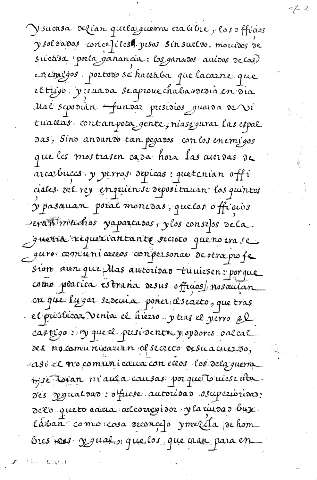 y su casa dezian que la guerra era libre, los officiales
y soldados concejiles, pero sin sueldo, movidos de
su cobdicia por la ganancia: los ganados avidos de los
enemigos. por todo se hallava que la carne que
el trigo, y cevada se aprovechava de dia en dia
Mal se podian fundar presidios guarda de vi
tuallas con tan poca gente, ni asegurar las espal
das, sino andando tan pegados con los enemigos
que les mostrasen cada hora las cuerdas de
arcabuces y yerros de picas: que tenian offi
ciales del rey en quien se depositavan los quintos
y pasavan por almonedas, que los officios
eran muchos y apartados, y los consejos de la
guerra requerian tanto secreto que no era se
guro comunicarlos con personas de otra profe
sion aunque mas autoridad tuviesen: porque
como platica estraña de sus officios, no sabian
en que lugar se devia poner el secreto, que tras
el publicar venia el aviso y tras el yerro el
castigo: y que el presidente y oydores o alcal
des no comunicavan el secreto de su acuerdo,
asi el no comunicava con ellos los de la guerra
ni se veian ni avia causas por que tuviesen
des ygualdad: o fuese autoridad o superioridad:
de lo que tocava al corregidor y la ciudad bur
lavan como cosa de concejo y mezcla de hom
bres y que los, que eran para en